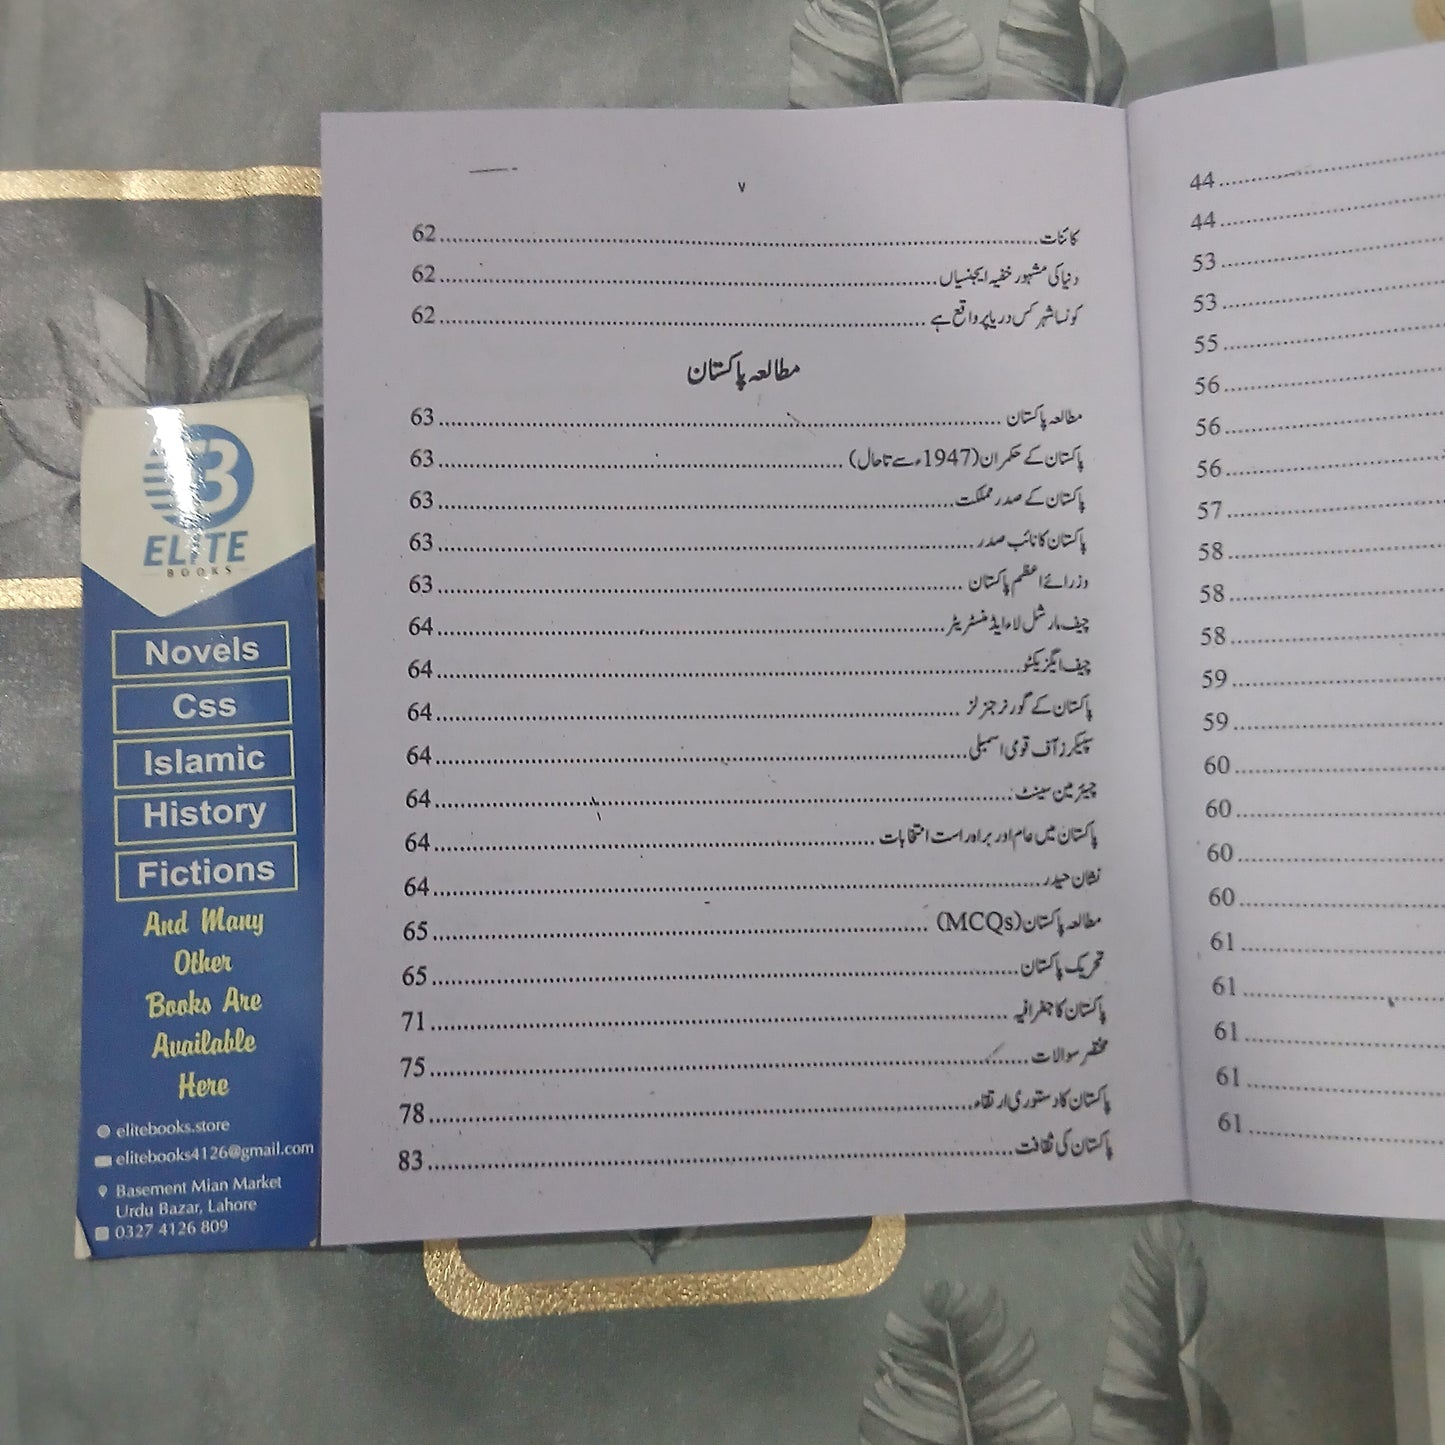 ۷
کائنات 62
دنیا کی مشہور خفیہ ایجنسیاں 62
کونسا شہر کس دریا پر واقع ہے 62
مطالعہ پاکستان
مطالعہ پاکستان 63
پاکستان کے حکمران (1947ء سے تاحال) 63
پاکستان کے صدر مملکت 63
پاکستان کا نائب صدر 63
وزرائے اعظم پاکستان 63
چیف مارشل لاء ایڈمنسٹریٹر 64
چیف ایگزیکٹو 64
پاکستان کے گورنر جنرلز 64
سپیکرز آف قومی اسمبلی 64
چیئرمین سینٹ 64
پاکستان میں عام اور براہ راست انتخابات 64
نشان حیدر 64
مطالعہ پاکستان (MCQs) 65
تحریک پاکستان 65
پاکستان کا جغرافیہ 71
مختصر سوالات 75
پاکستان کا دستوری ارتقاء 78
پاکستان کی ثقافت 83
44
44
53
53
55
56
56
56
57
58
58
58
59
59
60
60
60
60
61
61
61
61
61
ELITE
BOOKS
Novels
Css
Islamic
History
Fictions
And Many
Other
Books Are
Available
Here
elitebooks.store
elitebooks4126@gmail.com
Basement Mian Market
Urdu Bazar, Lahore
0327 4126 809